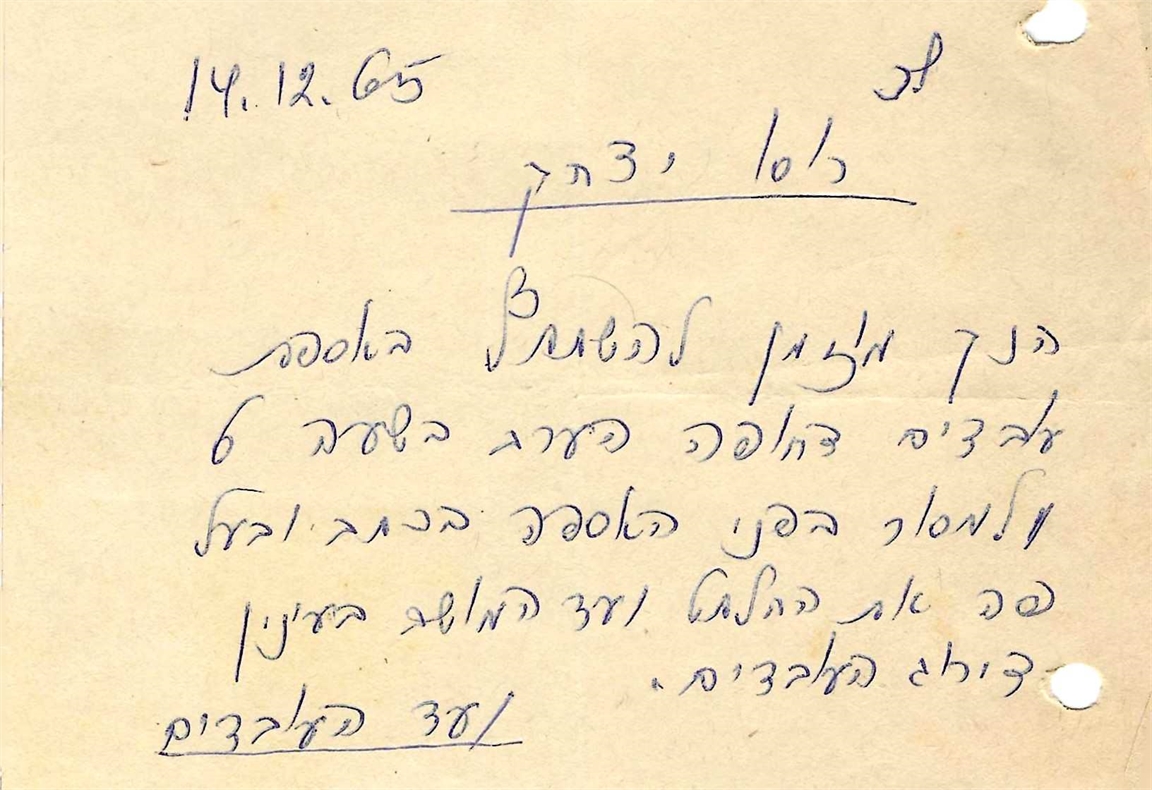 14.12.65 לכ
רוסו יצחק
הנך מוזמן להשתתף באספת
עובדים דחופה הערב בשעה 6
ולמסור בפני האספה בכתב ובעל
פה את החלטת ועד המושב בעינין
דירוג העובדים.
ועד העובדים